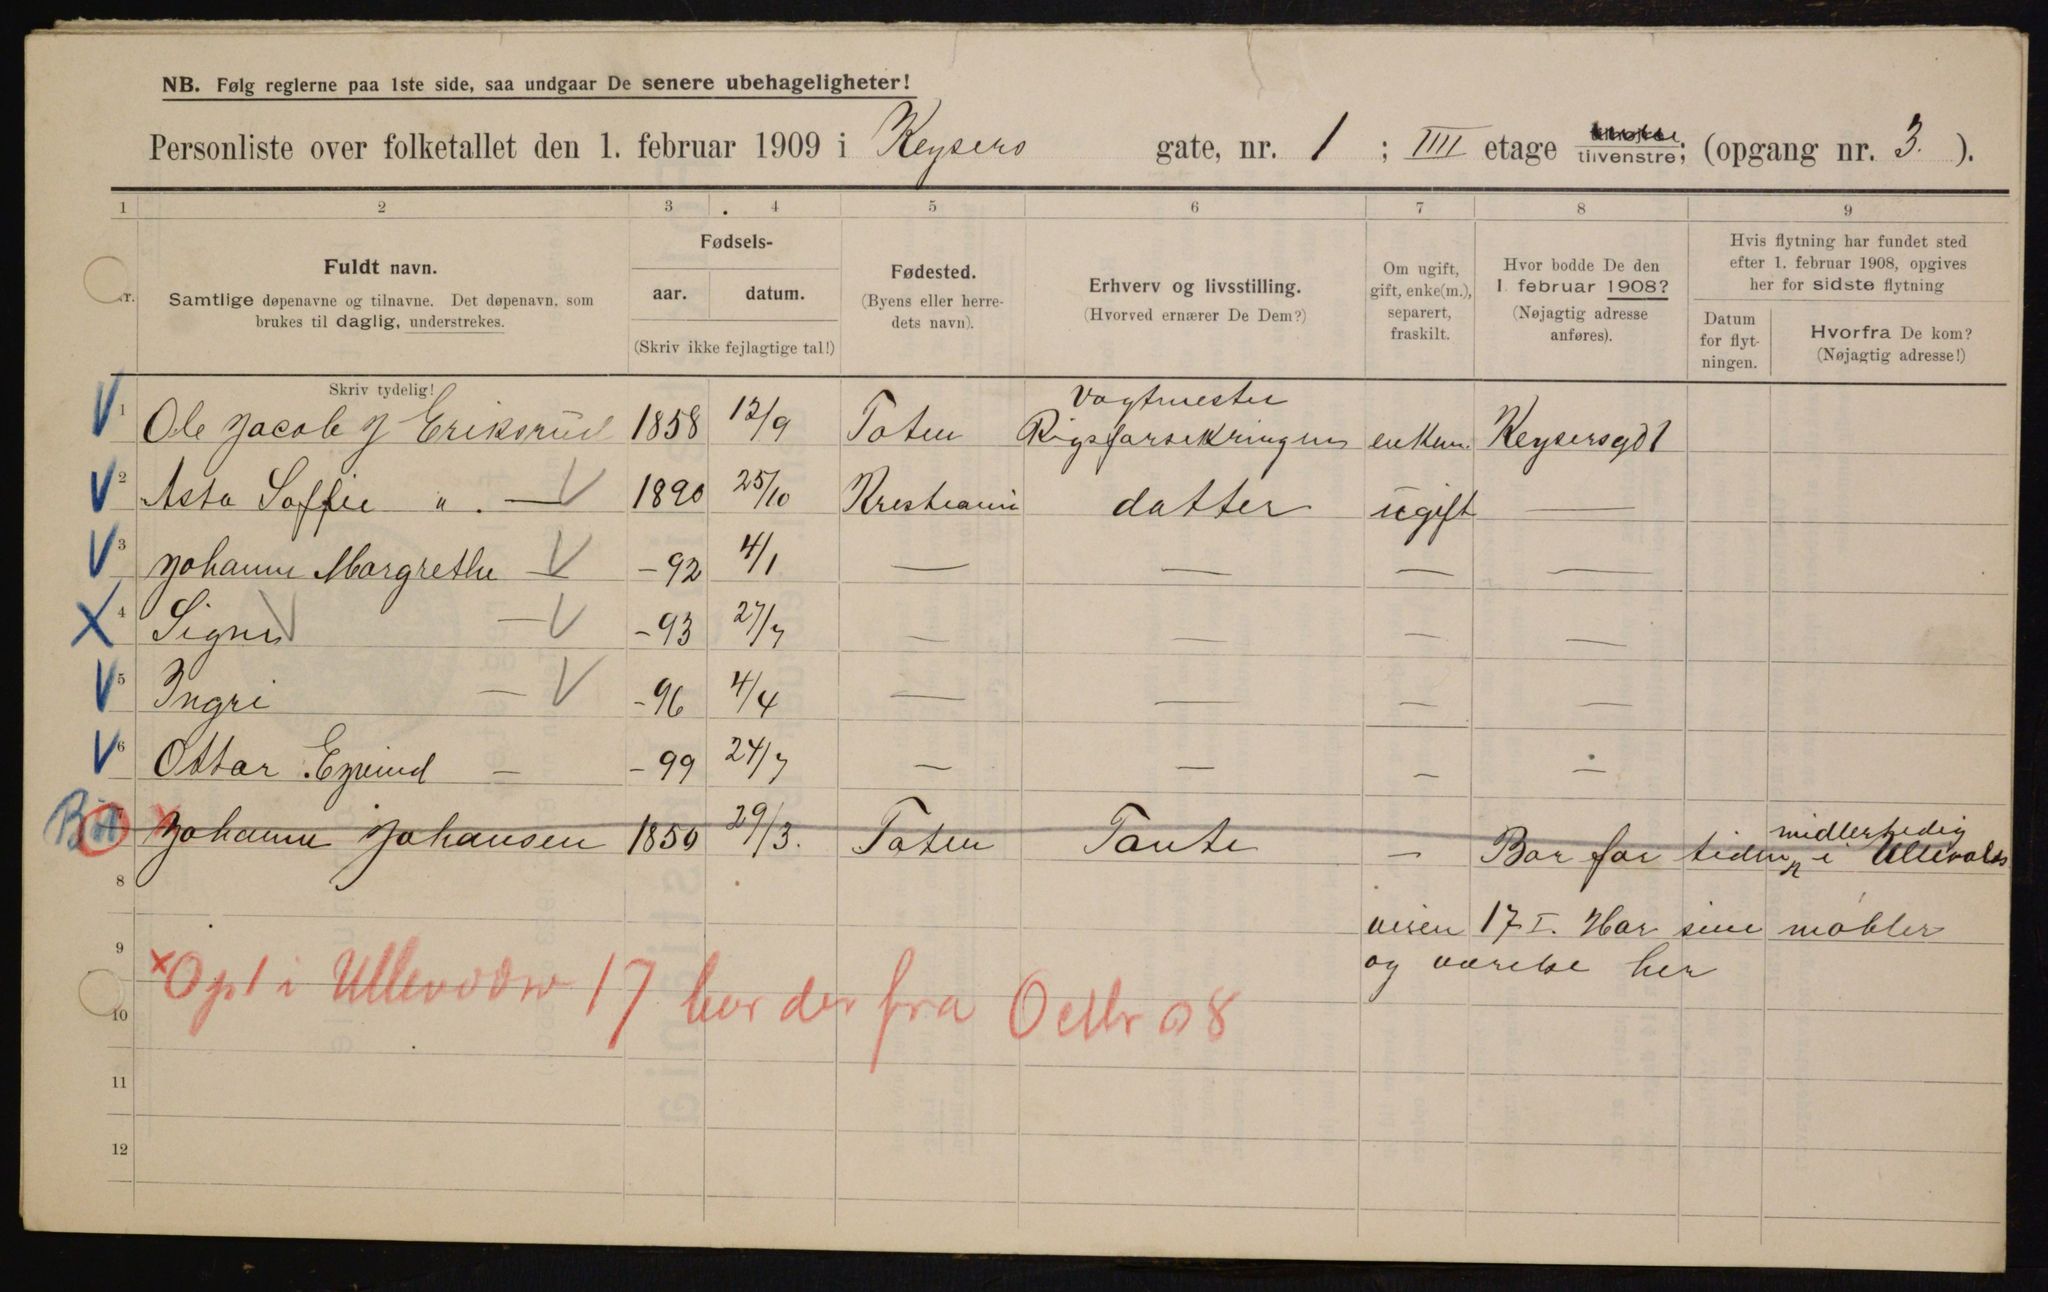 NB. Følg reglerne paa 1ste side, saa undgaar De senere ubehageligheter!
Personliste over folketallet den 1. februar 1909 i Keysers gate, nr. 1 ; IIII etage tilvenstre; (opgang nr. 3. ).
1 2 3 4 5 6 7 8 9
Fuldt navn.
Samtlige døpenavne og tilnavne. Det døpenavn, som
brukes til daglig, understrekes.
Skriv tydelig!
Fødsels-
aar. datum.
(Skriv ikke fejlagtige tal!)
Fødested.
(Byens eller herre-
dets navn).
Erhverv og livsstilling.
(Hvorved ernærer De Dem?)
Om ugift,
gift, enke(m.),
separert,
fraskilt.
Hvor bodde De den
1. februar 1908?
(Nøjagtig adresse
anføres).
Hvis flytning har fundet sted
efter 1. februar 1908, opgives
her for sidste flytning
Datum
for flyt-
ningen.
Hvorfra De kom?
(Nøjagtig adresse!)
V 1 Ole Jacob J Eriksrud 1858 12/9 Toten Vagtmester Rigsforsekringen enkem. Keysersgd 1
V 2 Asta Soffie " . — V 1890 25/10 Krestiania datter ugift —
V 3 Johanne Margrethe — V - 92 4/1 — — — —
X 4 Signe V — V - 93 27/7 — — — —
V 5 Ingri — V - 96 4/4 — — — —
V 6 Ottar Eyvind — - 99 24/7 — — — —
x Johanne Johansen 1850 29/3. Toten Tante — Bor for tiden midlertidig i Ullevolds
8
veien 17 I. Har sine møbler
9
og værelse her
x Opt i Ullevoldsv 17 bor der fra Octbr 08
10
11
12